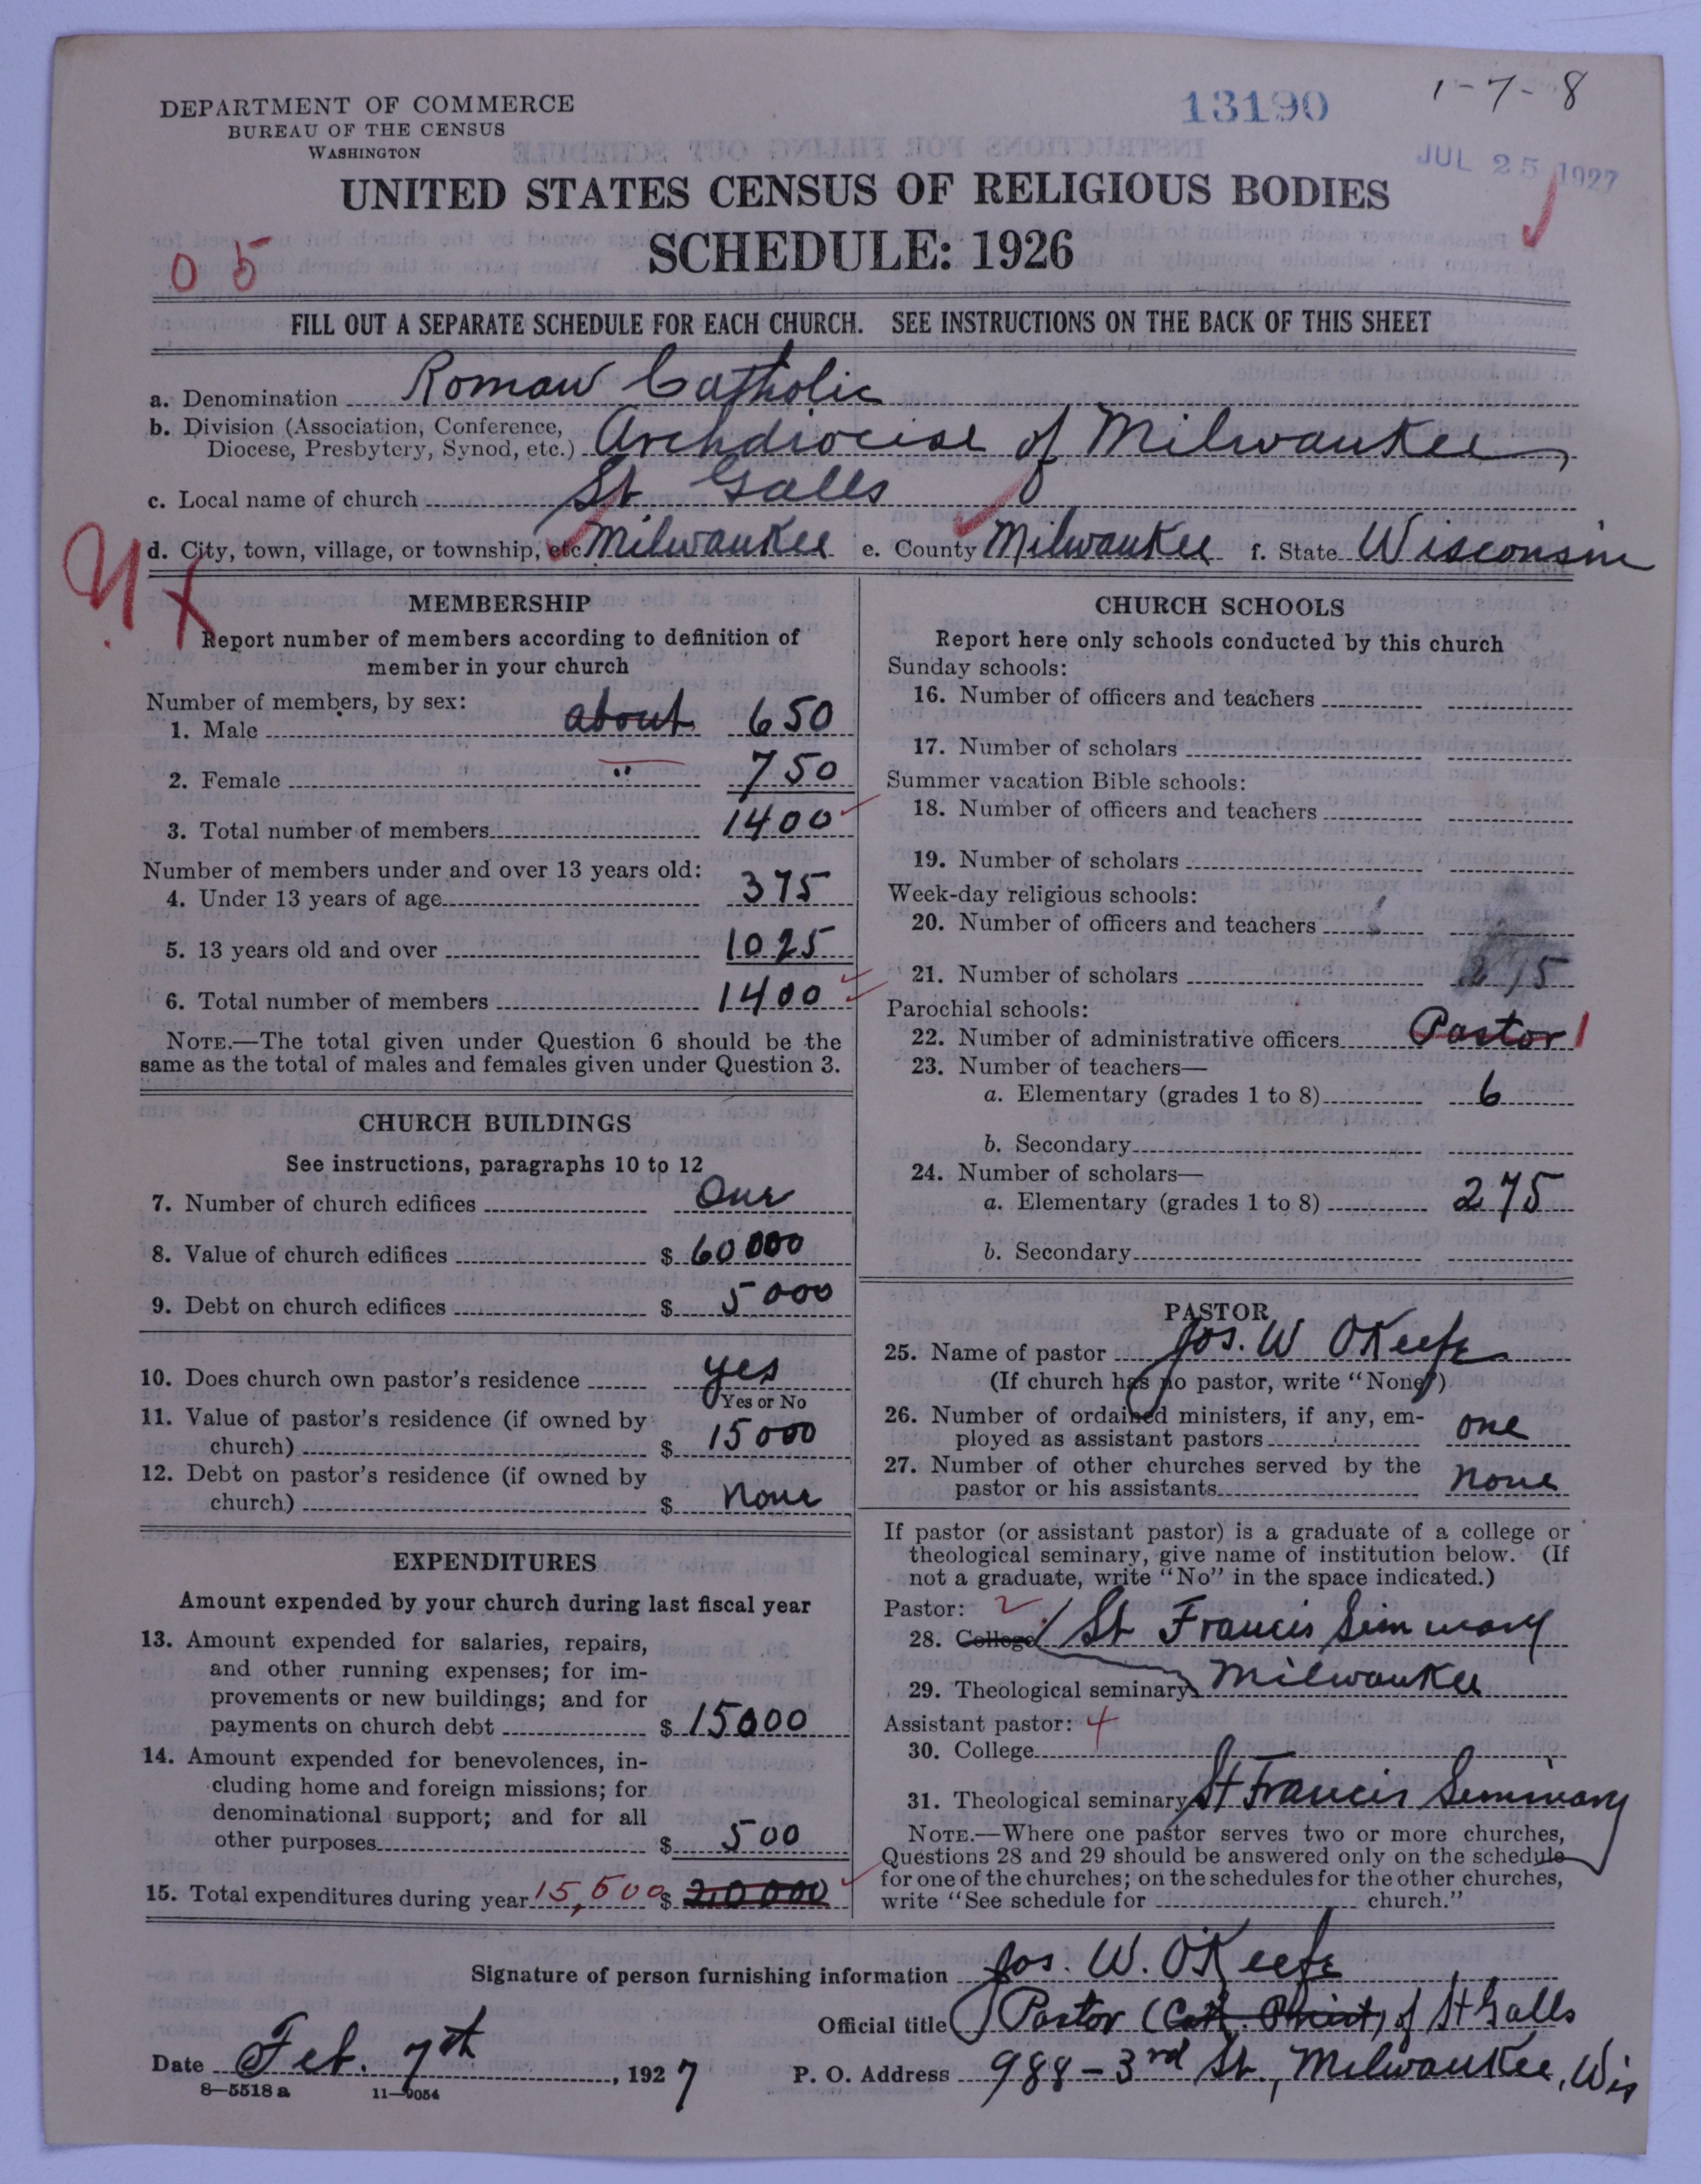 DEPARTMENT OF COMMERCE
BUREAU OF THE CENSUS
WASHINGTON
13190
1-7-8
JUL 25 1927
UNITED STATES CENSUS OF RELIGIOUS BODIES
SCHEDULE: 1926
0 5
FILL OUT A SEPARATE SCHEDULE FOR EACH CHURCH. SEE INSTRUCTIONS ON THE BACK OF THIS SHEET
a. Denomination Roman Catholic
b. Division (Association, Conference,
Diocese, Presbytery, Synod, etc.) Archdiocese of Milwaukee,
c. Local name of church St Galls
d. City, town, village, or township, etc. Milwaukee e. County Milwaukee f. State Wisconsin
MEMBERSHIP
Report number of members according to definition of
member in your church
Number of members, by sex:
1. Male about 650
2. Female " 750
3. Total number of members 1400
Number of members under and over 13 years old:
4. Under 13 years of age 375
5. 13 years old and over 1025
6. Total number of members 1400
NOTE.—The total given under Question 6 should be the
same as the total of males and females given under Question 3.
CHURCH BUILDINGS
See instructions, paragraphs 10 to 12
7. Number of church edifices One
8. Value of church edifices $ 60000
9. Debt on church edifices $ 5000
10. Does church own pastor's residence yes
Yes or No
11. Value of pastor's residence (if owned by
church) $ 15000
12. Debt on pastor's residence (if owned by
church) $ None
EXPENDITURES
Amount expended by your church during last fiscal year
13. Amount expended for salaries, repairs,
and other running expenses; for im-
provements or new buildings; and for
payments on church debt $ 15000
14. Amount expended for benevolences, in-
cluding home and foreign missions; for
denominational support; and for all
other purposes $ 500
15. Total expenditures during year 15,500 $ 20000
CHURCH SCHOOLS
Report here only schools conducted by this church
Sunday schools:
16. Number of officers and teachers
17. Number of scholars
Summer vacation Bible schools:
18. Number of officers and teachers
19. Number of scholars
Week-day religious schools:
20. Number of officers and teachers
21. Number of scholars 275
Parochial schools:
22. Number of administrative officers Pastor 1
23. Number of teachers—
a. Elementary (grades 1 to 8) 6
b. Secondary
24. Number of scholars—
a. Elementary (grades 1 to 8) 275
b. Secondary
PASTOR
25. Name of pastor Jos. W OKeefe
(If church has no pastor, write "None")
26. Number of ordained ministers, if any, em-
ployed as assistant pastors one
27. Number of other churches served by the
pastor or his assistants none
If pastor (or assistant pastor) is a graduate of a college or
theological seminary, give name of institution below. (If
not a graduate, write "No" in the space indicated.)
Pastor: 2
28. College St Francis Seminary
29. Theological seminary Milwaukee
Assistant pastor: 4
30. College
31. Theological seminary St Francis Seminary
NOTE.—Where one pastor serves two or more churches,
Questions 28 and 29 should be answered only on the schedule
for one of the churches; on the schedules for the other churches,
write "See schedule for church."
Signature of person furnishing information Jos. W. OKeefe
Official title Pastor (Cath. Priest) of St Galls
Date Feb. 7th, 1927 P. O. Address 988-3rd St., Milwaukee, Wis
8—5518a 11—9054